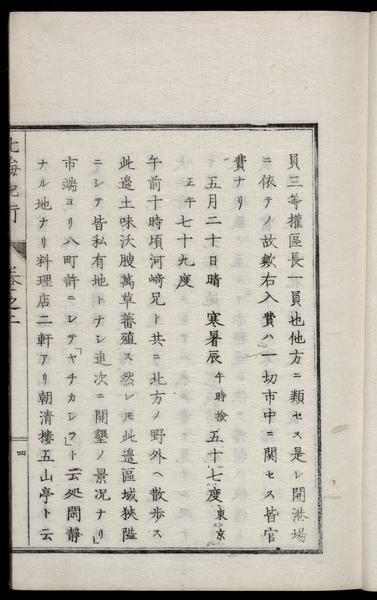 員三等權區長一員也他方ニ類セス是レ開港場
ニ依テノ故歟右入費ハ一切市中ニ関セス皆官
費ナリ
五月二十日晴 寒暑辰午時檢五十七度東京
正午七十九度
午前十時頃河﨑兄ト共ニ北方ノ野外ヘ散歩ス
此邉土味沃腴萬草蕃殖ス然レ𪜈此邉區域狹隘
ニシテ皆私有地トナシ追次ニ開墾ノ景况ナリ」
市端ヨリ八町許ニシテ「ヤチカシラ」ト云処閑静
ナル地ナリ料理店二軒アリ朝清樓五山亭ト云
北海紀行
卷之二
四